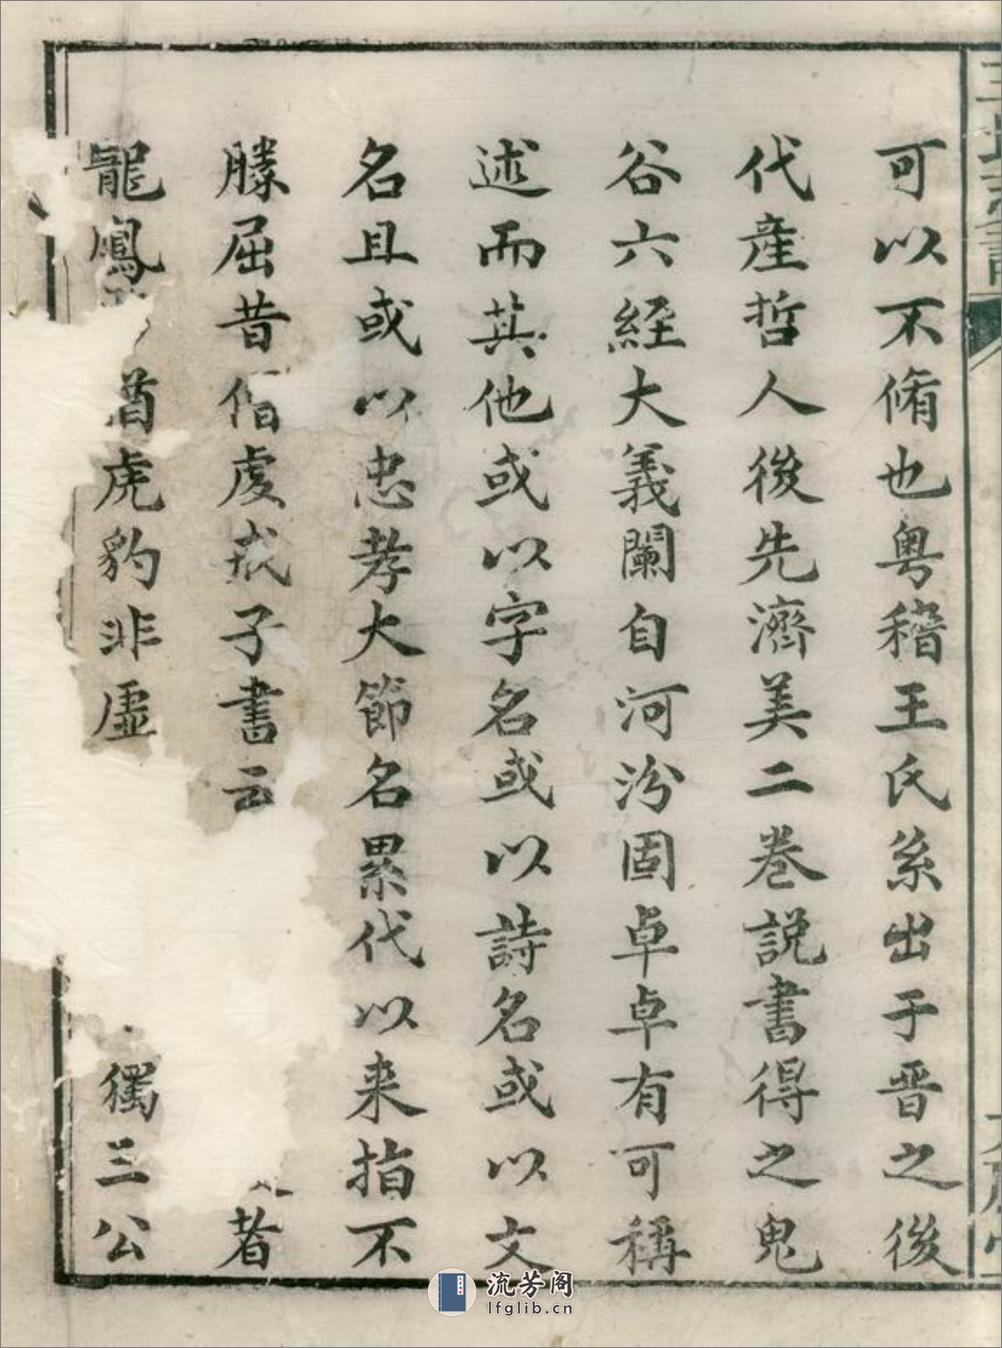 可以不脩也粤稽王氏系出于晋之後
代産哲人後先濟美二卷説書得之鬼
谷六經大義闡自河汾固卓卓有可稱
述而其他或以字名或以詩名或以文
名且或以忠孝大節名累代以来指不
勝屈昔僧虔戒子書云 者
龍鳳 猶虎豹非虚 獨三公
流芳阁
lfglib.cn